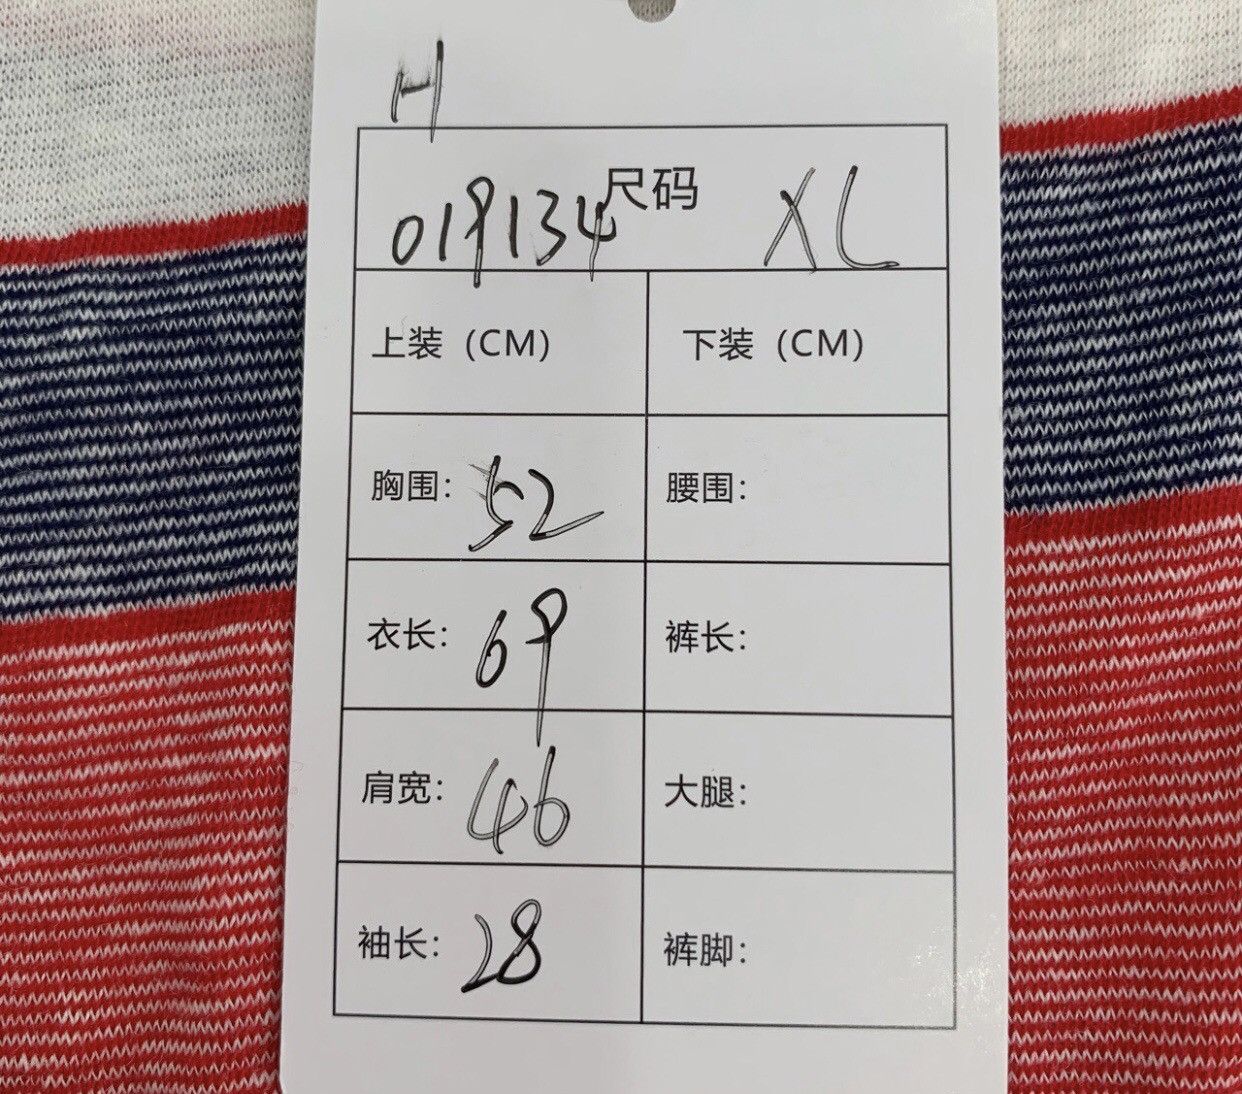 H
019134 尺码 XL
上装（CM） 下装（CM）
胸围：52 腰围：
衣长：69 裤长：
肩宽：46 大腿：
袖长：28 裤脚：